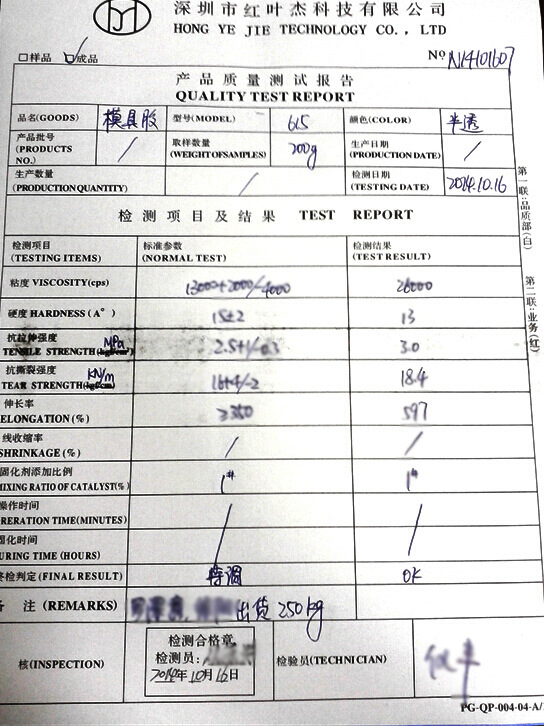 深圳市红叶杰科技有限公司
HONG YE JIE TECHNOLOGY CO., LTD
□样品 ☑成品
NO N14101607
产品质量测试报告
QUALITY TEST REPORT
品名(GOODS) 模具胶 型号(MODEL) 615 颜色(COLOR) 半透
产品批号 取样数量 生产日期
(PRODUCTS NO.) / (WEIGHTOFSAMPLES) 200g (PRODUCTION DATE) /
生产数量 检测日期
(PRODUCTION QUANTITY) / (TESTING DATE) 2014.10.16
检测项目及结果 TEST REPORT
检测项目 标准参数 检测结果
(TESTING ITEMS) (NORMAL TEST) (TEST RESULT)
粘度 VISCOSITY(cps) 26000
硬度 HARDNESS(A°) 15±2 13
抗拉伸强度 MPa
TENSILE STRENGTH(kgf/cm²) 2.5+1/-0.3 3.0
抗撕裂强度 KN/m
TEAR STRENGTH(kgf/cm) 16+4/-2 18.4
伸长率
ELONGATION(%) ≥350 597
线收缩率
SHRINKAGE(%) / /
固化剂添加比例
MIXING RATIO OF CATALYST(%) 1# 1#
操作时间
PRERATION TIME(MINUTES) / /
固化时间
URING TIME (HOURS)
终检判定(FINAL RESULT) 特调 OK
备 注 (REMARKS) 出货 250kg
核(INSPECTION)
检测合格章
检测员:
2014年10月16日
检验员(TECHNICIAN)
PG-QP-004-04-A/
第一联:品质部(白)
第二联:业务(红)